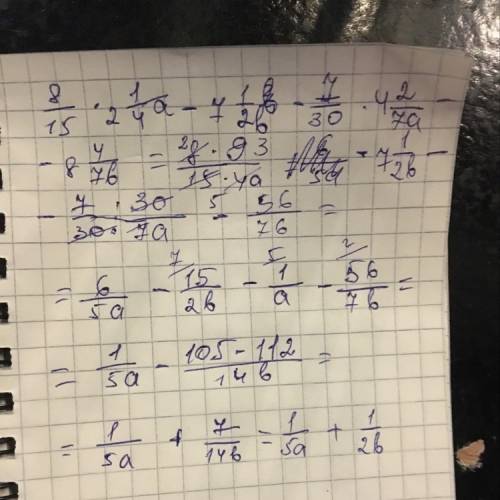 8/15 · 2 1/4a - 7 1/2b - 7/30 · 4 2/7a -
- 8 4/7b = 8 · 9 3/15 · 4a - 7 1/2b -
- 7 · 30/30 · 7a - 56/7b =
= 6/5a - 15/2b - 1/a - 56/7b =
= 1/5a - 105 - 112/14b =
= 1/5a + 7/14b = 1/5a + 1/2b